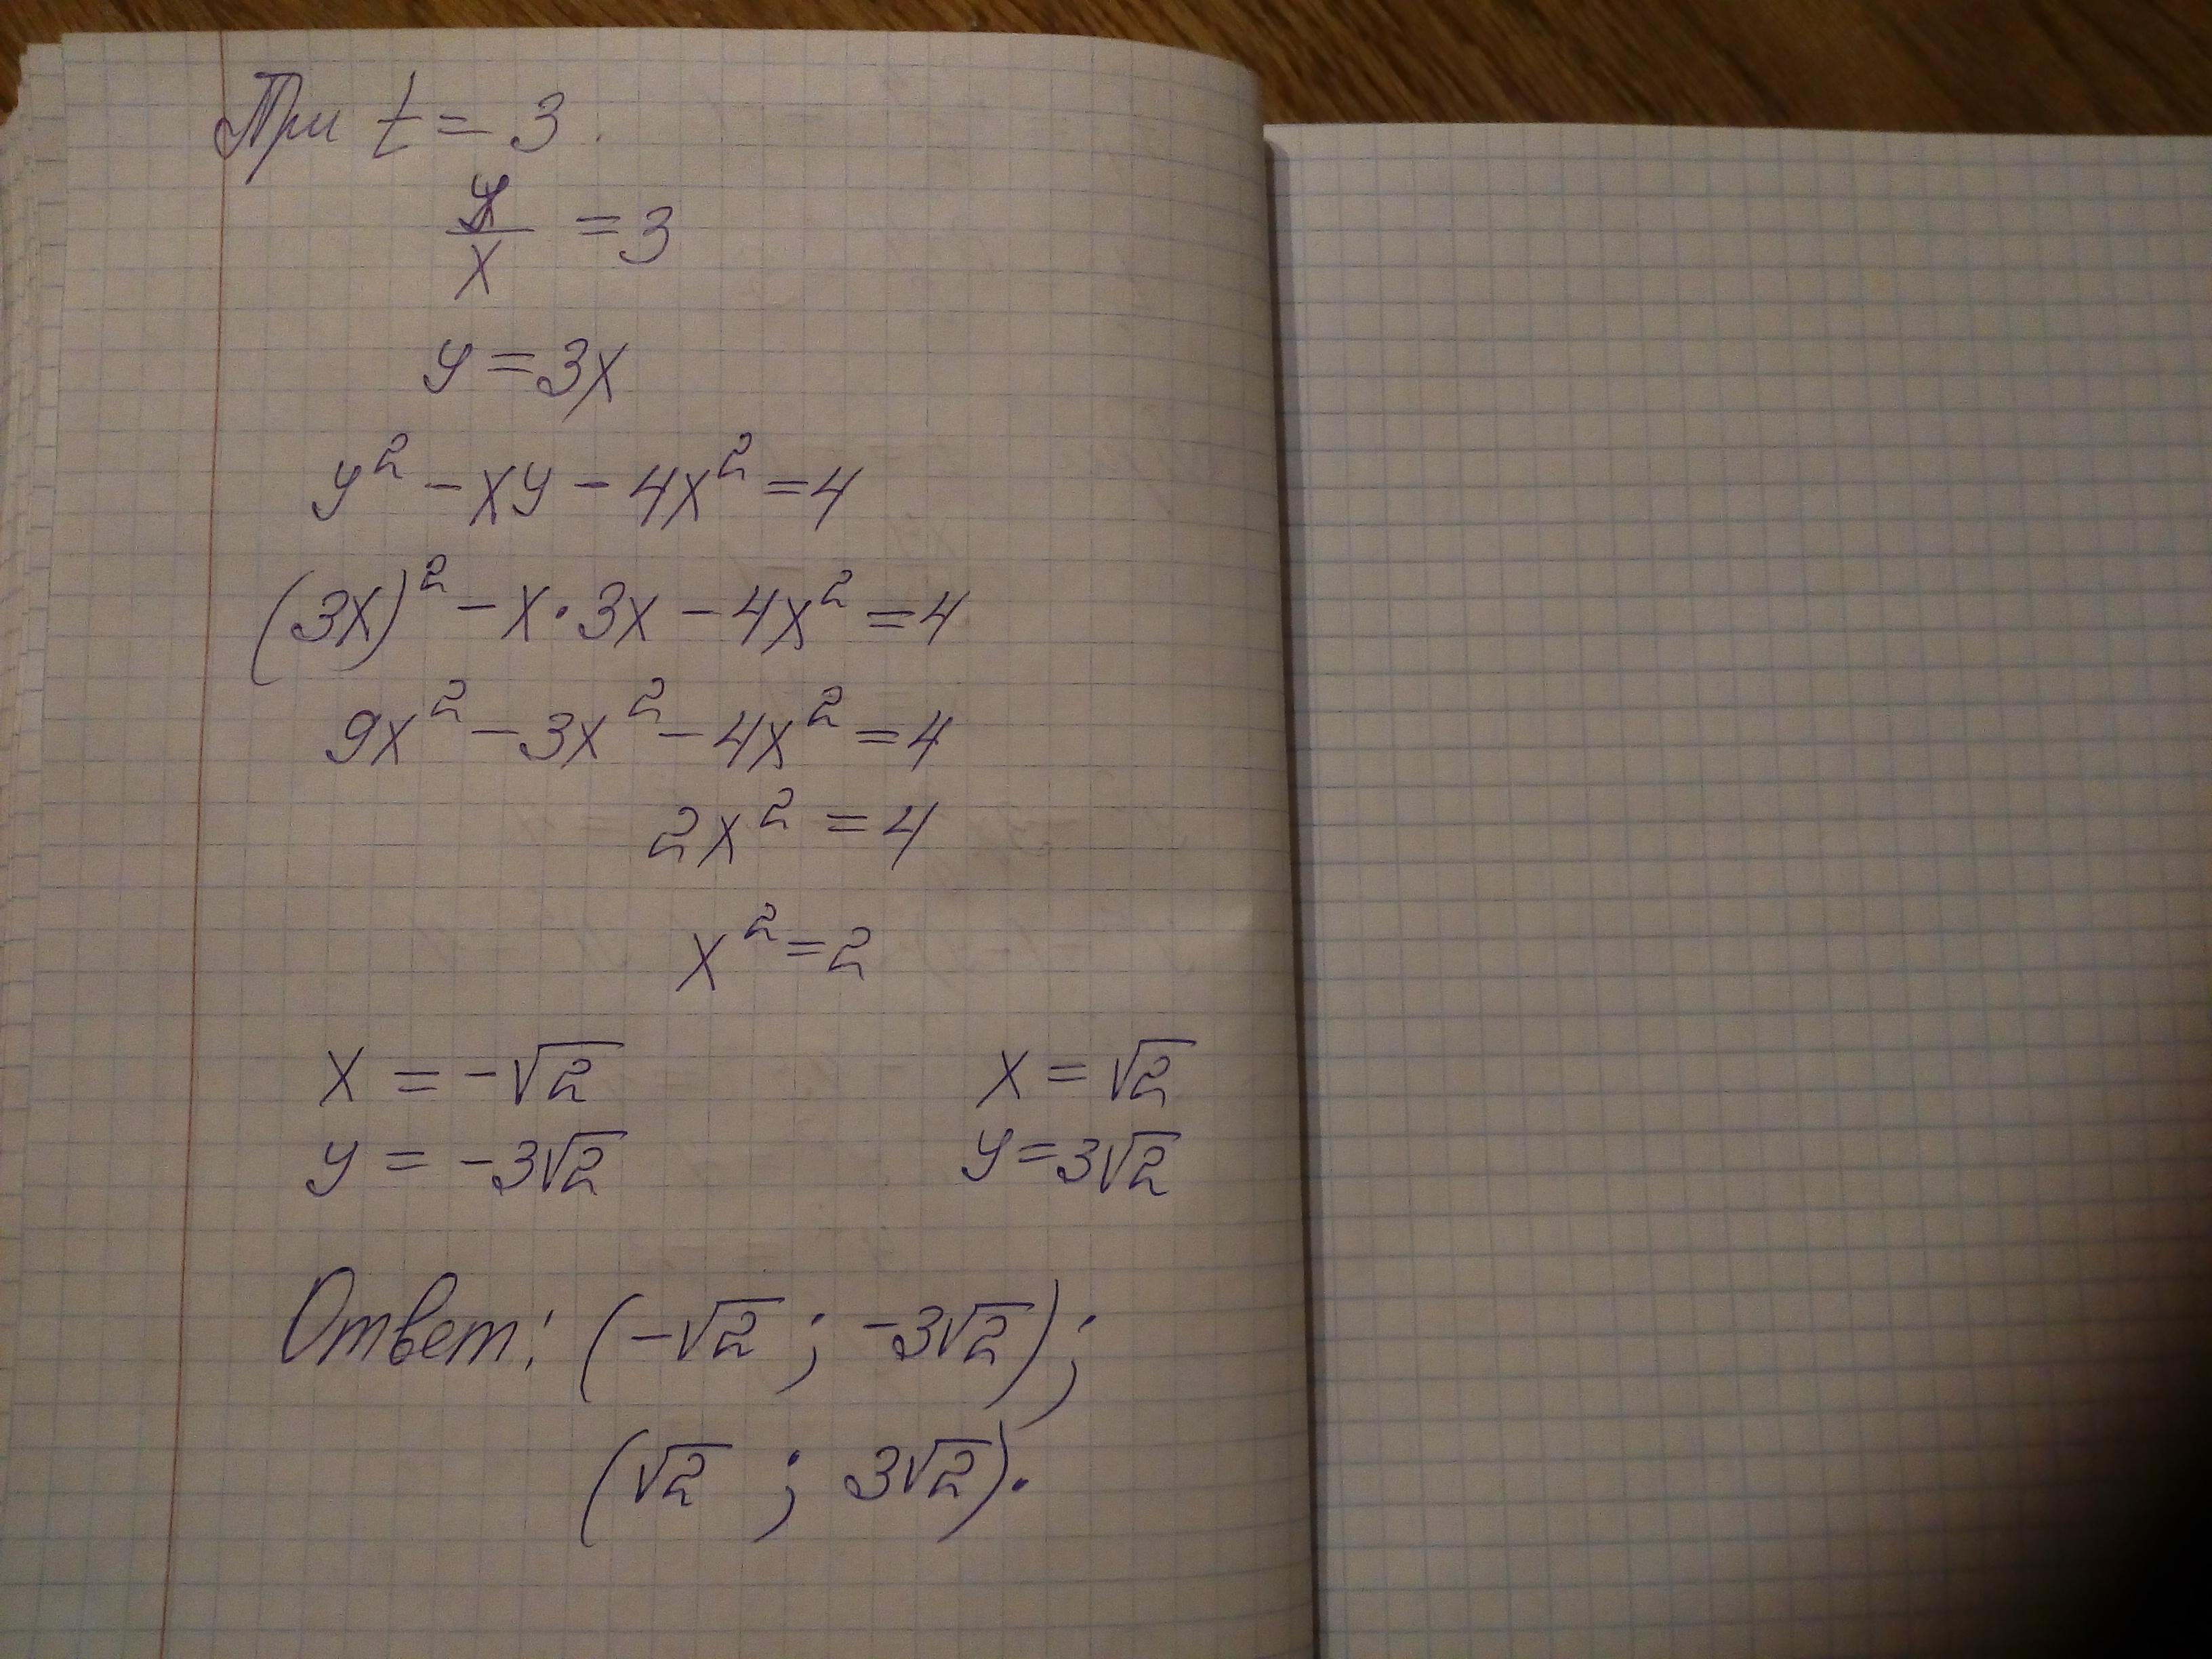 При t = 3.
y/x = 3
y = 3x
y² - xy - 4x² = 4
(3x)² - x · 3x - 4x² = 4
9x² - 3x² - 4x² = 4
2x² = 4
x² = 2
x = -√2 x = √2
y = -3√2 y = 3√2
Ответ: (-√2 ; -3√2);
(√2 ; 3√2).